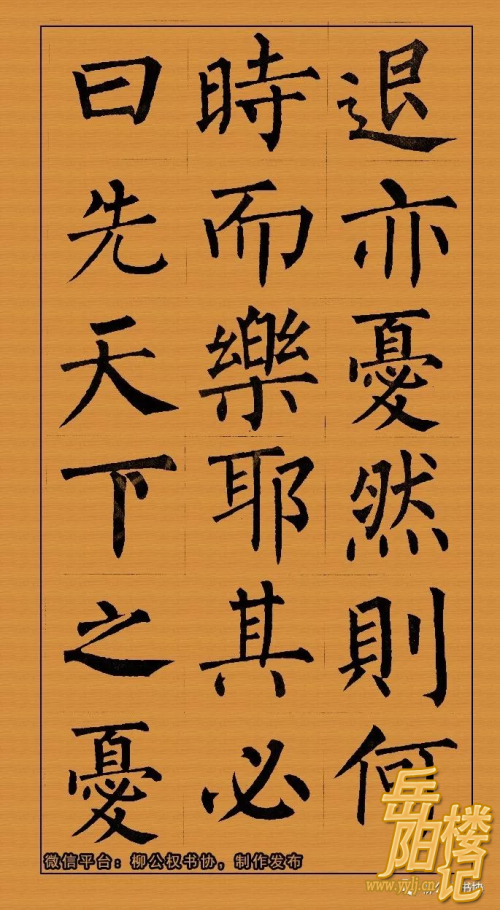 退亦憂然則何
時而樂耶其必
曰先天下之憂
微信平台：柳公权书协，制作发布
岳阳楼记
www.yylj.cn
书协